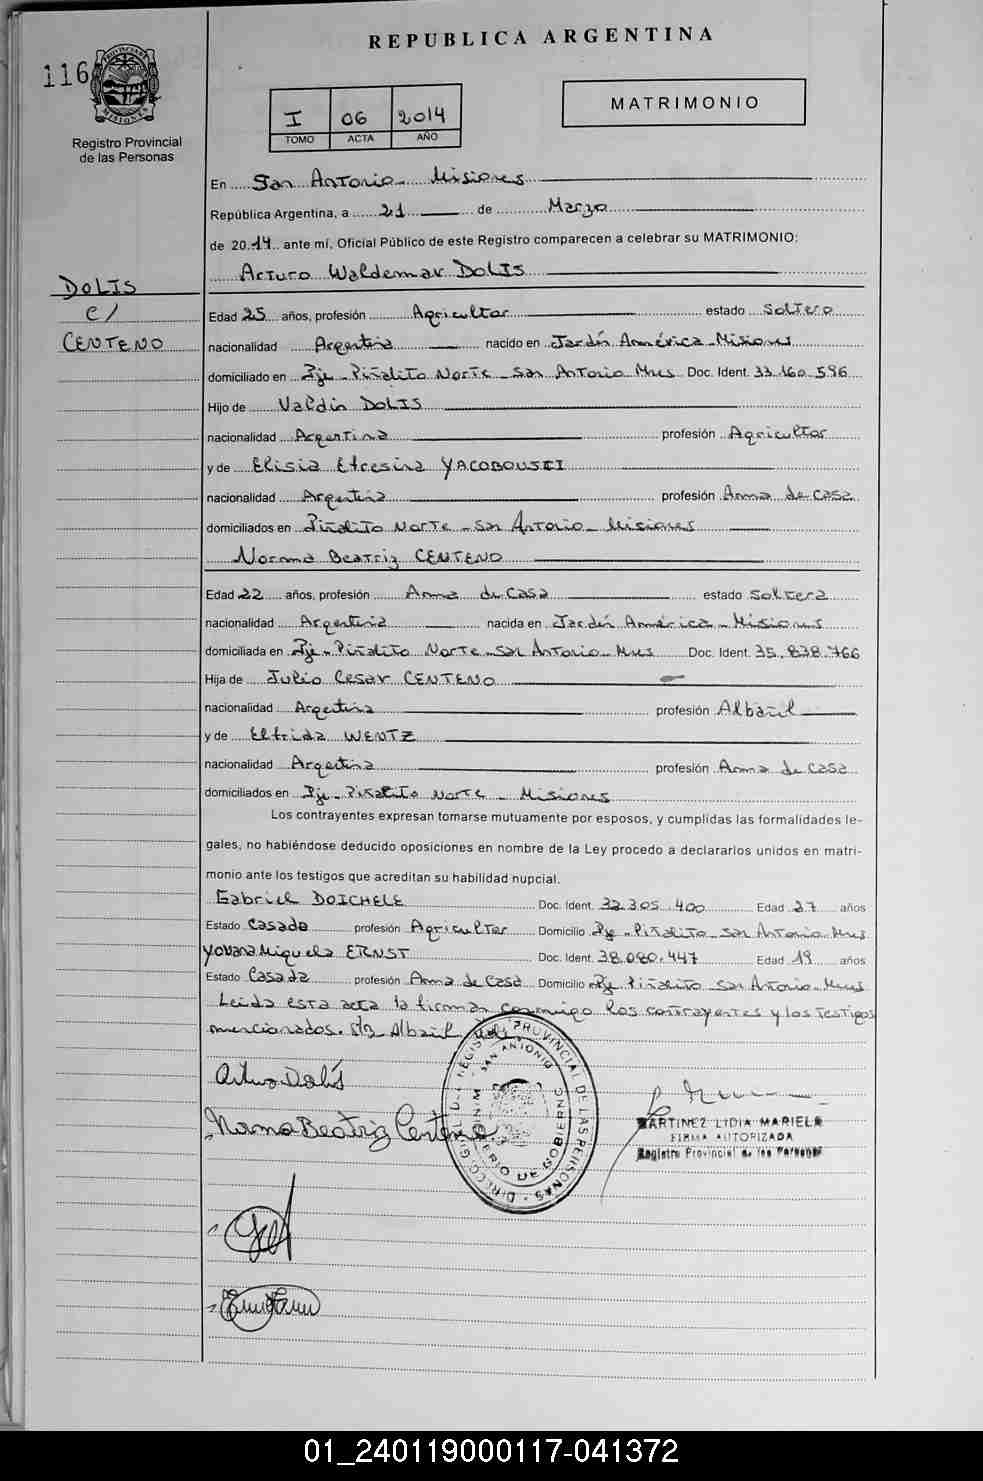 REPUBLICA ARGENTINA
116
PROVINCIA DE MISIONES
Registro Provincial
de las Personas
I 06 2014
TOMO ACTA AÑO
MATRIMONIO
En San Antonio - Misiones
República Argentina, a 21 de Marzo
de 2014 ante mí, Oficial Público de este Registro comparecen a celebrar su MATRIMONIO:
Arturo Waldemar DOLIS
DOLIS
c/
CENTENO
Edad 25 años, profesión Agricultor estado Soltero
nacionalidad Argentina nacido en Jardín América - Misiones
domiciliado en Pje - Piñalito Norte - San Antonio Mnes Doc. Ident. 33.160.596
Hijo de Valdin DOLIS
nacionalidad Argentina profesión Agricultor
y de Elisia Etresina
nacionalidad Argentina profesión Ama de casa
domiciliados en Piñalito Norte - San Antonio - Misiones
Norma Beatriz CENTENO
Edad 22 años, profesión Ama de Casa estado Soltera
nacionalidad Argentina nacida en Jardín América - Misiones
domiciliada en Pje - Piñalito Norte - San Antonio - Mnes Doc. Ident. 35.838.766
Hija de Julio Cesar CENTENO
nacionalidad Argentina profesión Albañil
y de Elfrida WENTZ
nacionalidad Argentina profesión Ama de Casa
domiciliados en Pje - Piñalito Norte - Misiones
Los contrayentes expresan tomarse mutuamente por esposos, y cumplidas las formalidades le-
gales, no habiéndose deducido oposiciones en nombre de la Ley procedo a declararlos unidos en matri-
monio ante los testigos que acreditan su habilidad nupcial.
Gabriel DOICHELE Doc. Ident. 32.305.400 Edad 27 años
Estado Casado profesión Agricultor Domicilio Pje - Piñalito San Antonio Mnes
Yovana Miguela ERNST Doc. Ident. 38.080.447 Edad 19 años
Estado Casada profesión Ama de Casa Domicilio Pje Piñalito San Antonio - Mnes
Leída esta acta la firman conmigo los contrayentes y los testigos
mencionados. S/R Albañil, Vale
Arturo Dolis
Norma Beatriz Centeno
DIRECC. GRAL. DEL REGISTRO PROVINCIAL DE LAS PERSONAS
SAN ANTONIO
MINISTERIO DE GOBIERNO
MARTINEZ LIDIA MARIELA
FIRMA AUTORIZADA
Registro Provincial de las Personas
01_240119000117-041372